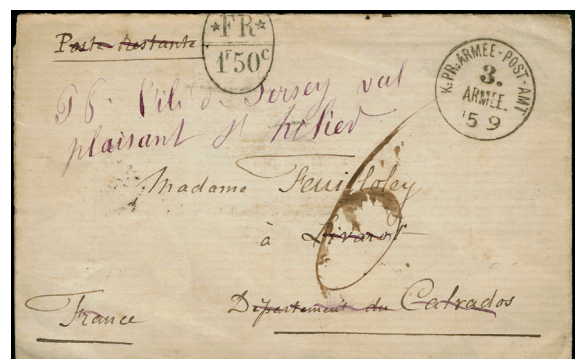 Poste Restante
*FR*
1F50c
K.PR.ARMEE-POST-AMT
3.
ARMEE.
5 9
l'ile d Jersey val
plaisant St helier
Madame Feuilloley
à Livarot
Département du Calvados
France